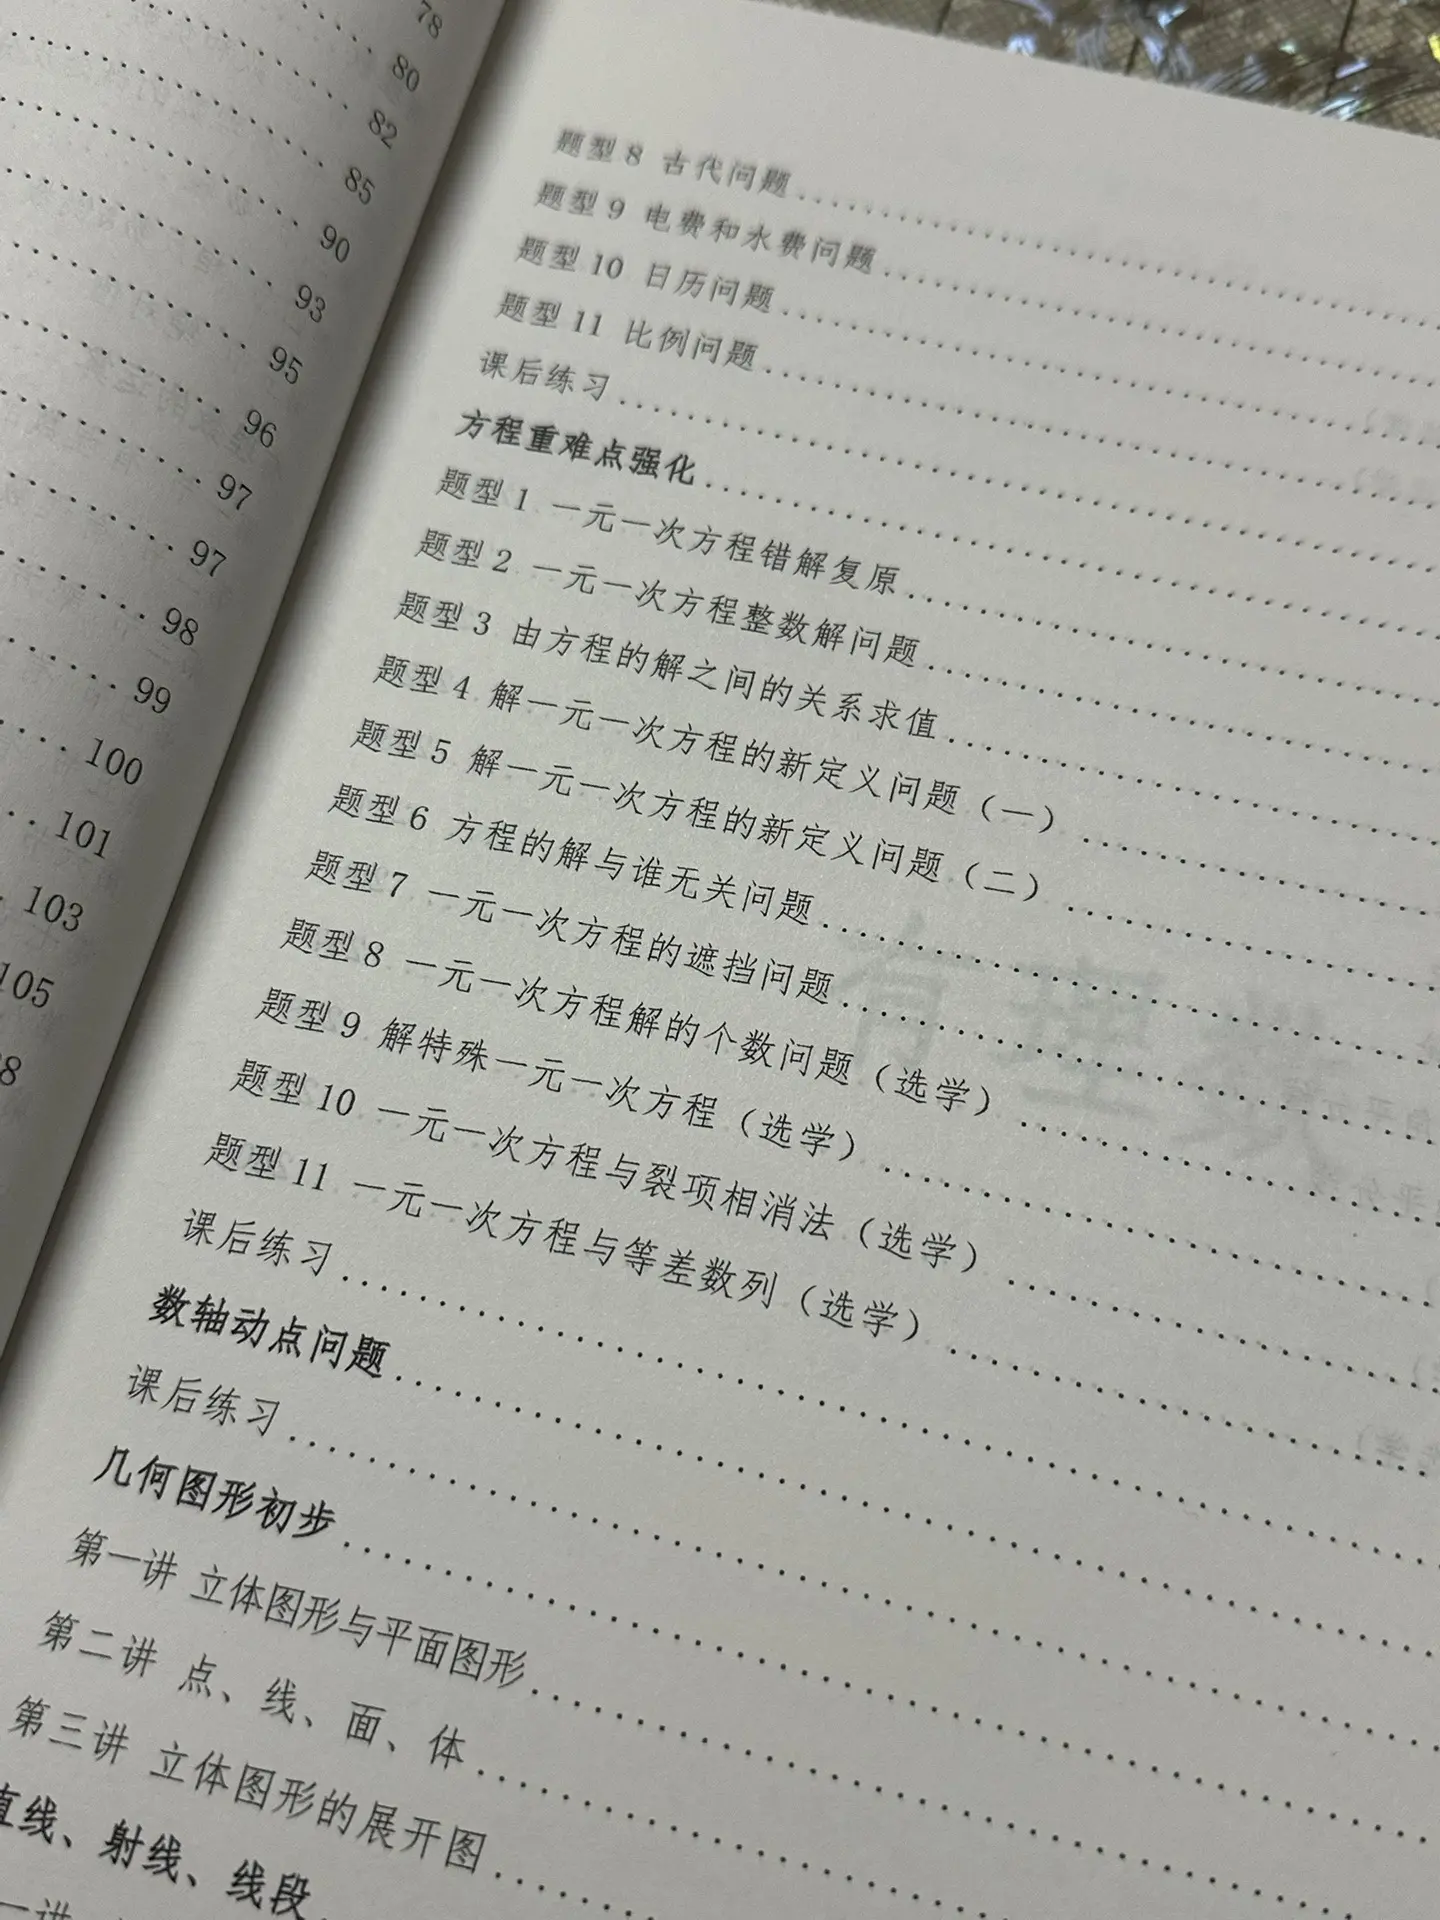 78
80
82
85
90
93
95
96
97
97
98
99
100
101
103
105
题型8 古代问题
题型9 电费和水费问题
题型10 日历问题
题型11 比例问题
课后练习
方程重难点强化
题型1 一元一次方程错解复原
题型2 一元一次方程整数解问题
题型3 由方程的解之间的关系求值
题型4 解一元一次方程的新定义问题（一）
题型5 解一元一次方程的新定义问题（二）
题型6 方程的解与谁无关问题
题型7 一元一次方程的遮挡问题
题型8 一元一次方程解的个数问题（选学）
题型9 解特殊一元一次方程（选学）
题型10 一元一次方程与裂项相消法（选学）
题型11 一元一次方程与等差数列（选学）
课后练习
数轴动点问题
课后练习
几何图形初步
第一讲 立体图形与平面图形
第二讲 点、线、面、体
第三讲 立体图形的展开图
直线、射线、线段